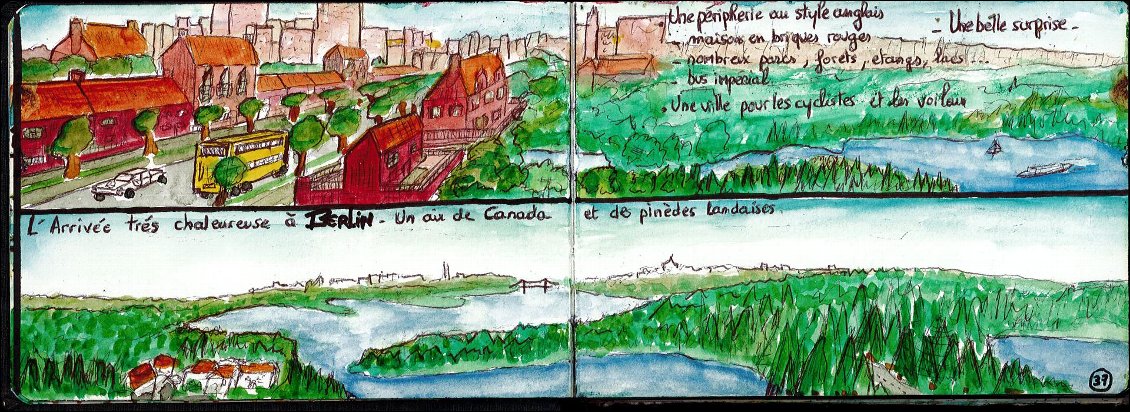 Une péripherie au style anglais
- maison en briques rouges
- nombreux parcs, forêts, etangs, lacs ...
- bus imperial
. Une ville pour les cyclistes et les voiliers
: Une belle surprise -
L'Arrivée trés chaleureuse à BERLIN - Un air de Canada et des pinèdes landaises.
37